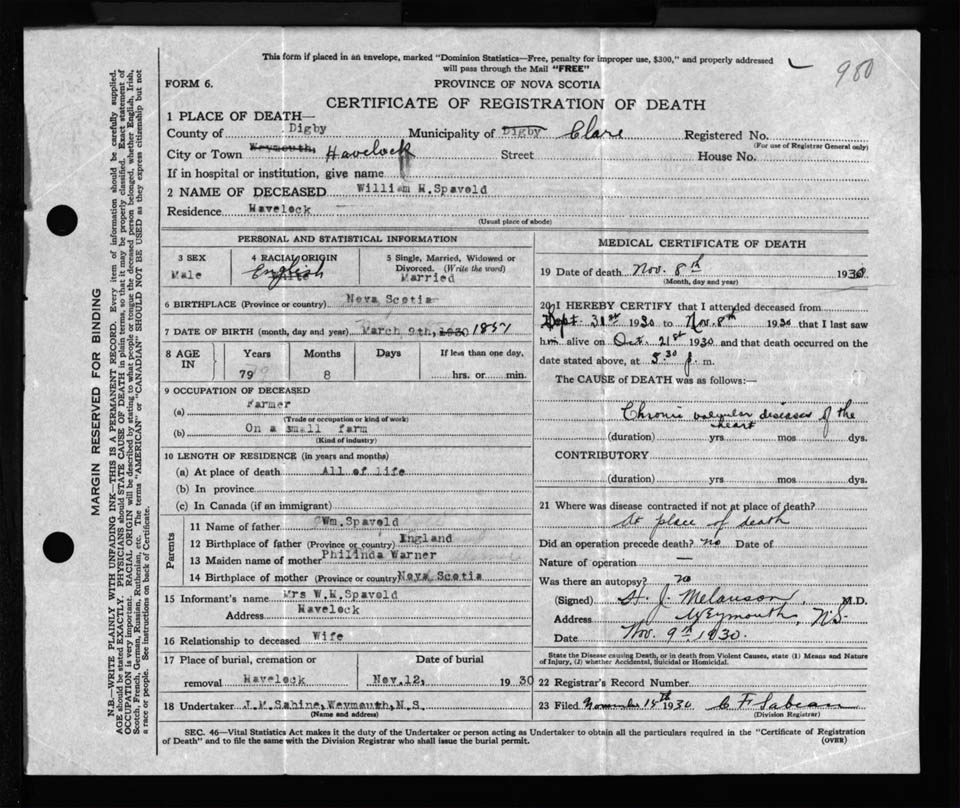 This form if placed in an envelope, marked "Dominion Statistics—Free, penalty for improper use, $300," and properly addressed
will pass through the Mail "FREE"
980
FORM 6.
PROVINCE OF NOVA SCOTIA
CERTIFICATE OF REGISTRATION OF DEATH
1 PLACE OF DEATH—
County of Digby Municipality of Digby Clare Registered No.
(For use of Registrar General only)
City or Town Weymouth, Havelock Street House No.
If in hospital or institution, give name
2 NAME OF DECEASED William H. Spaveld
Residence Havelock
(Usual place of abode)
PERSONAL AND STATISTICAL INFORMATION
3 SEX 4 RACIAL ORIGIN 5 Single, Married, Widowed or
Divorced. (Write the word)
Male English Married
6 BIRTHPLACE (Province or country) Nova Scotia
7 DATE OF BIRTH (month, day and year) March 9th, 1930 1857
8 AGE IN Years Months Days If less than one day,
79 8 hrs. or min.
9 OCCUPATION OF DECEASED
(a) Farmer
(Trade or occupation or kind of work)
(b) On a small farm
(Kind of industry)
10 LENGTH OF RESIDENCE (in years and months)
(a) At place of death All of life
(b) In province
(c) In Canada (if an immigrant)
Parents
11 Name of father Wm. Spaveld
12 Birthplace of father (Province or country) England
13 Maiden name of mother Philinda Warner
14 Birthplace of mother (Province or country) Nova Scotia
15 Informant's name Mrs W.H. Spaveld
Address Havelock
16 Relationship to deceased Wife
17 Place of burial, cremation or Date of burial
removal Havelock Nov.12, 1930
18 Undertaker J.M. Sabine, Weymouth, N.S.
(Name and address)
MEDICAL CERTIFICATE OF DEATH
19 Date of death Nov. 8th 1930
(Month, day and year)
20 I HEREBY CERTIFY that I attended deceased from
Sept 31st 1930 to Nov. 8th 1930 that I last saw
him alive on Oct. 21st 1930 and that death occurred on the
date stated above, at 5.30 p. m.
The CAUSE of DEATH was as follows:—
Chronic valvular diseases of the
heart
(duration) yrs mos dys.
CONTRIBUTORY
(duration) yrs mos dys.
21 Where was disease contracted if not at place of death?
At place of death
Did an operation precede death? no Date of
Nature of operation —
Was there an autopsy? no
(Signed) H. J. Melanson, M.D.
Address Weymouth, N.S.
Date Nov. 9th 1930.
State the Disease causing Death, or in death from Violent Causes, state (1) Means and Nature
of Injury, (2) whether Accidental, Suicidal or Homicidal.
22 Registrar's Record Number
23 Filed November 15th 1930 C F Sabean
(Division Registrar)
SEC. 46—Vital Statistics Act makes it the duty of the Undertaker or person acting as Undertaker to obtain all the particulars required in the "Certificate of Registration
of Death" and to file the same with the Division Registrar who shall issue the burial permit.
(OVER)
MARGIN RESERVED FOR BINDING
N.B.—WRITE PLAINLY WITH UNFADING INK—THIS IS A PERMANENT RECORD. Every item of information should be carefully supplied.
AGE should be stated EXACTLY. PHYSICIANS should STATE CAUSE OF DEATH in plain terms, so that it may be properly classified. Exact statement of
OCCUPATION is very important. RACIAL ORIGIN will be described by stating to what people or tongue the deceased person belonged, whether English, Irish,
Scotch, French, German, Russian, Ruthenian, etc. The terms "AMERICAN" or "CANADIAN" SHOULD NOT BE USED as they express citizenship but not
a race or people. See instructions on back of Certificate.